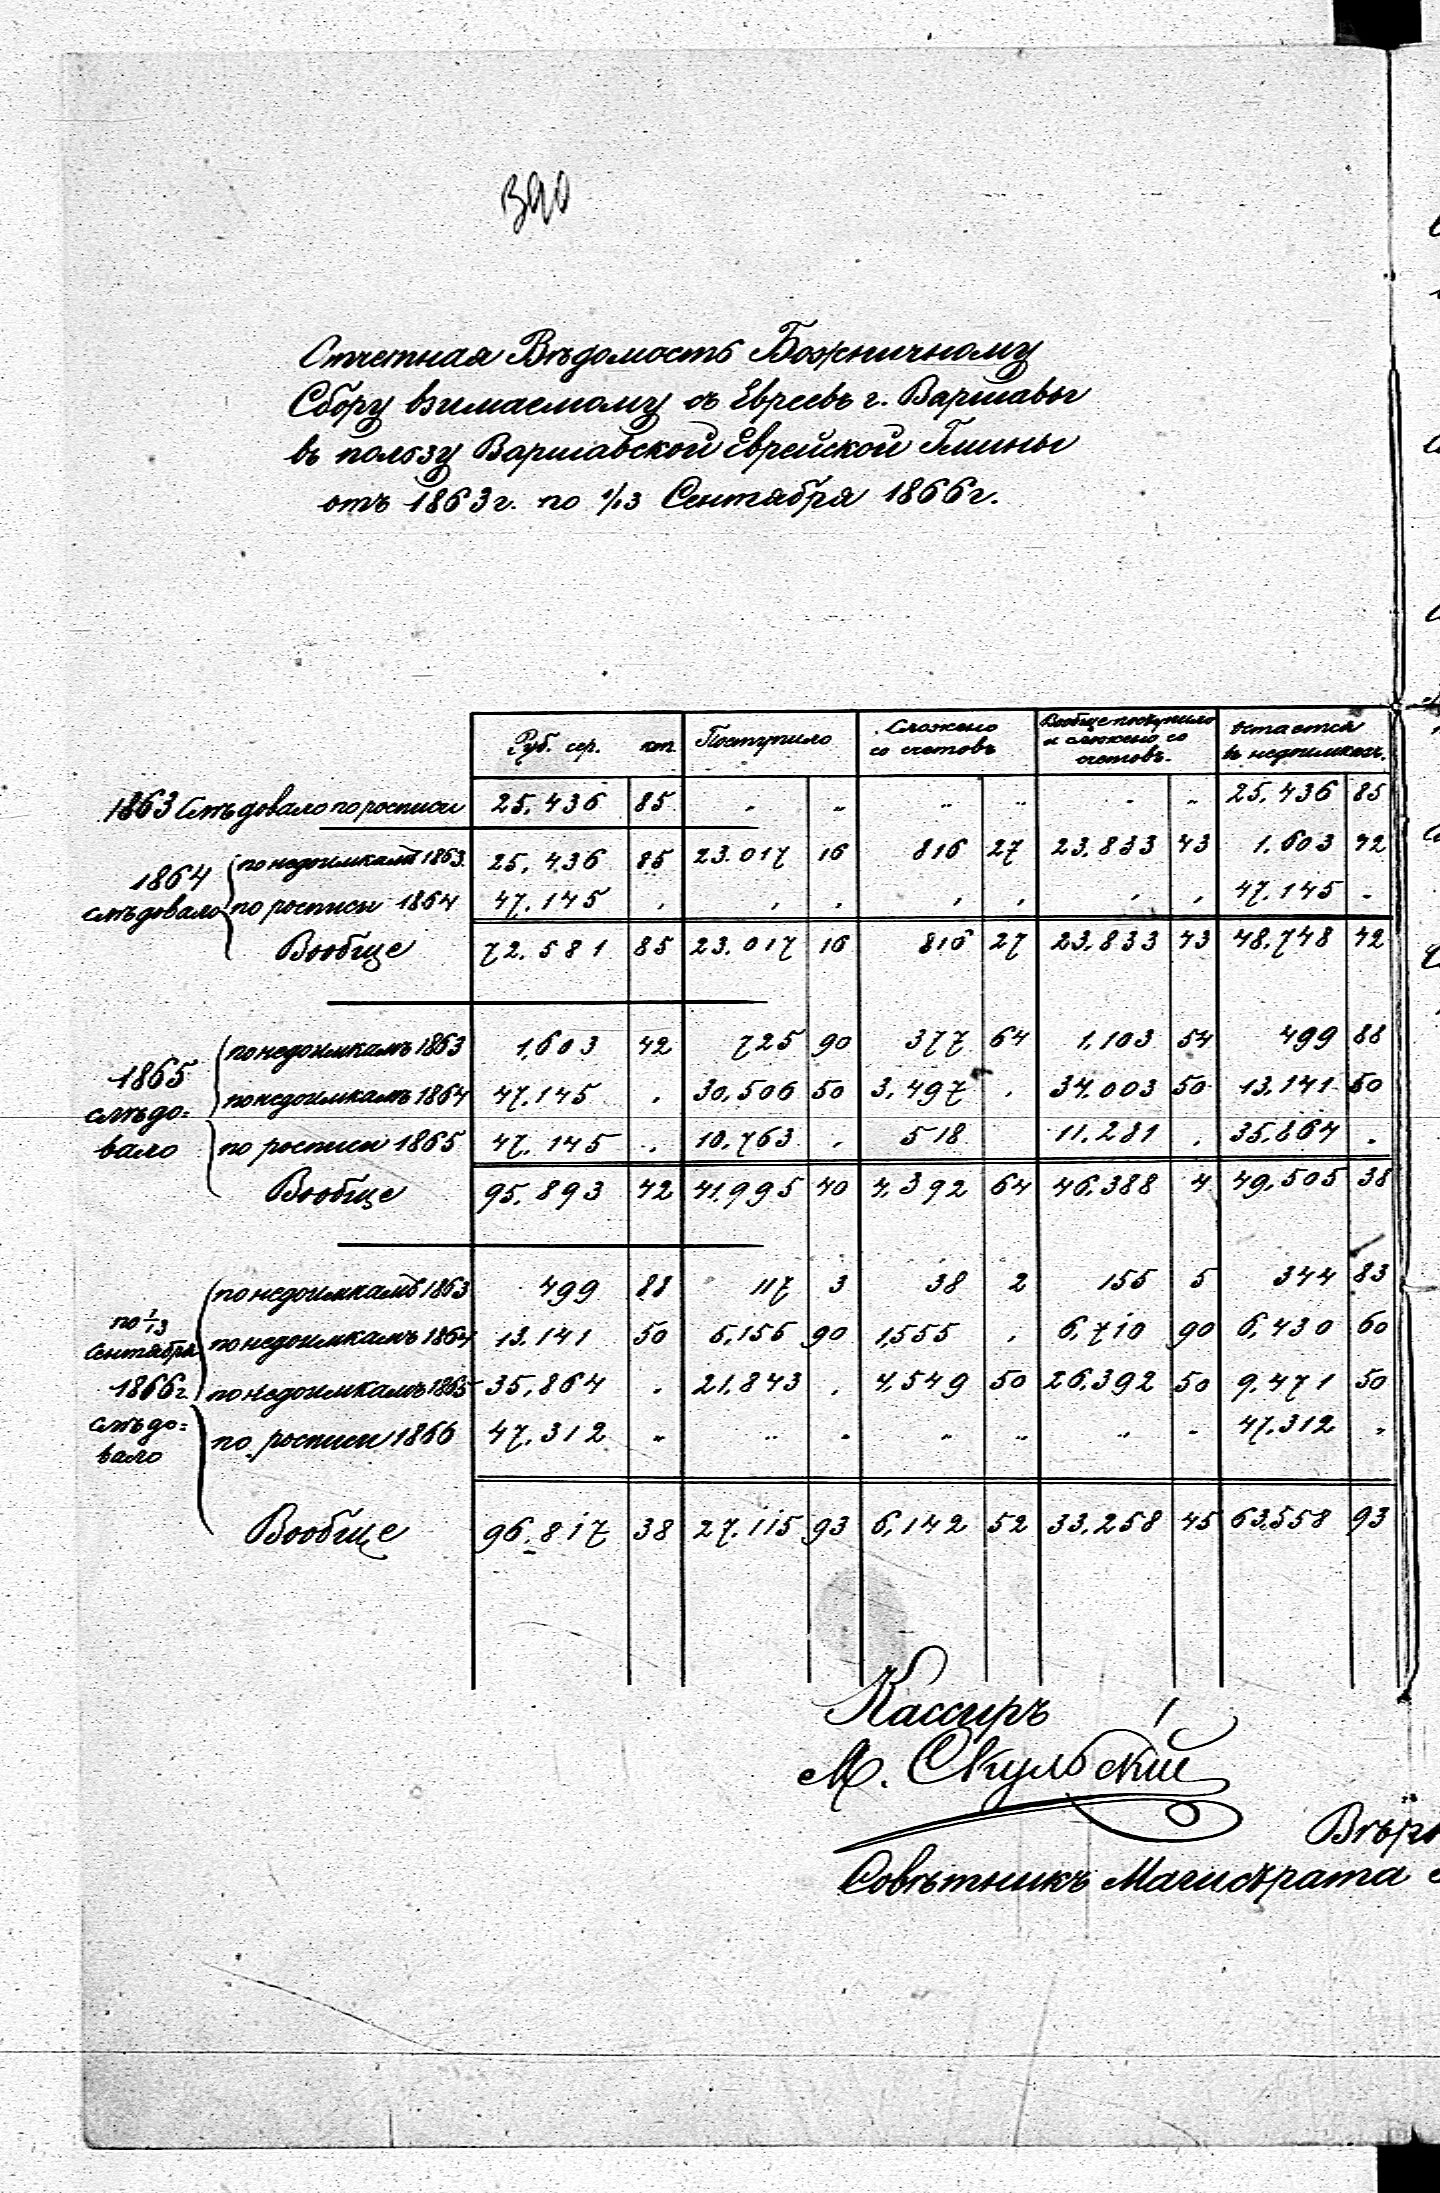 390
Отчетная Вѣдомость Божничному
Сбору взимаемому съ Евреевъ г. Варшавы
въ пользу Варшавской Еврейской Гмины
отъ 1863 г. по 1/13 Сентября 1866 г.
Руб. сер. коп. Поступило Сложено со счетовъ Вообще поступило и сложено со счетовъ. Остается въ недоимкахъ.
1863 Слѣдовало по росписи 25,436 85 „ „ „ „ „ „ 25,436 85
1864 слѣдовало
по недоимкамъ 1863 25,436 85 23.017 16 816 27 23,833 43 1.603 42
по росписи 1864 47.145 . . . . . . . 47.145 .
Вообще 72.581 85 23.017 16 816 27 23,833 43 48,748 42
1865 слѣдо=вало
по недоимкамъ 1863 1,603 42 725 90 377 64 1,103 54 499 88
по недоимкамъ 1864 47.145 . 30,506 50 3,497 . 34.003 50 13,141 50
по росписи 1865 47.145 . 10,763 . 518 11.281 . 35.864 .
Вообще 95,893 42 41,995 40 4,392 64 46,388 4 49,505 38
по 1/13 Сентября 1866 г. слѣдо=вало
по недоимкамъ 1863 499 88 117 3 38 2 155 5 344 83
по недоимкамъ 1864 13.141 50 5,155 90 1,555 . 6,710 90 6,430 60
по недоимкамъ 1865 35,864 . 21,843 . 4,549 50 26,392 50 9.471 50
по росписи 1866 47.312 „ „ „ „ „ „ „ 47.312 „
Вообще 96.817 38 27,115 93 6,142 52 33,258 45 63.558 93
Кассиръ
М. Скульскій
Совѣтникъ Магистрата